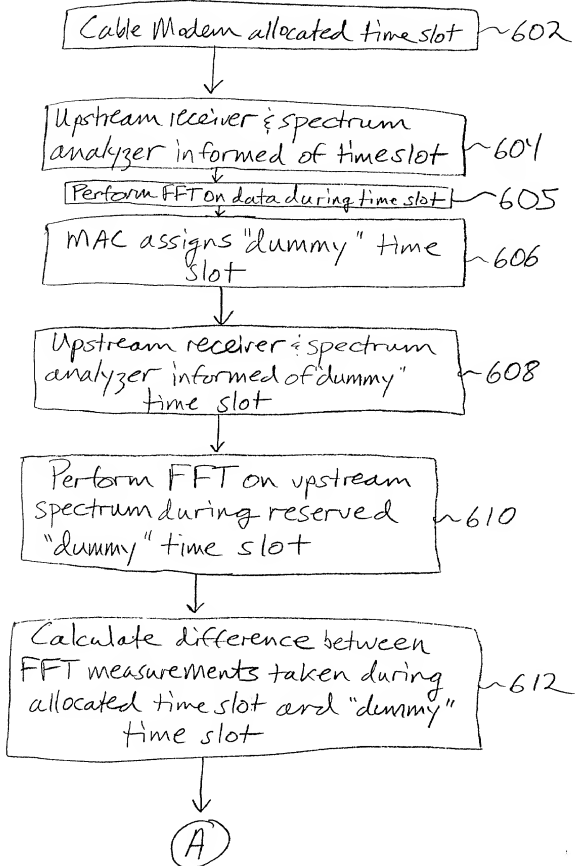 Cable Modem allocated time slot
602
Upstream receiver & spectrum
analyzer informed of timeslot
604
Perform FFT on data during time slot
605
MAC assigns "dummy" time
slot
606
Upstream receiver & spectrum
analyzer informed of "dummy"
time slot
608
Perform FFT on upstream
spectrum during reserved
"dummy" time slot
610
Calculate difference between
FFT measurements taken during
allocated time slot and "dummy"
time slot
612
A